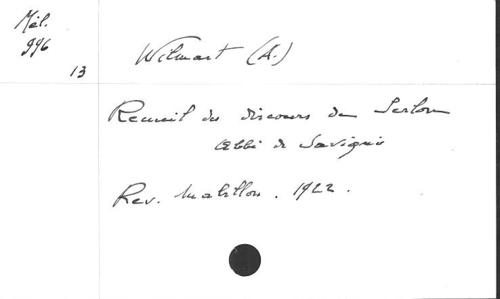 Mél.
996
13
Wilmart (A.)
Recueil des discours de Serlon
abbé de Savigny
Rev. Mabillon. 1922.